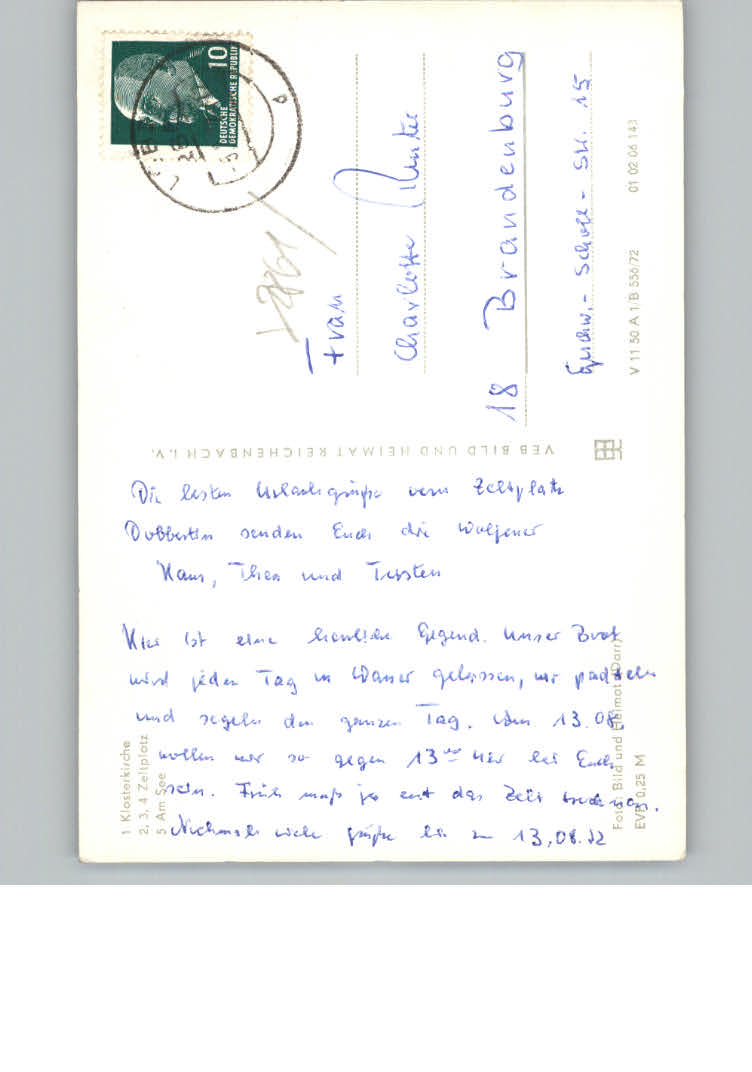 Die besten Urlaubsgrüße vom Zeltplatz
Dobbertin senden Euch die Wolfener
Hans, Thea und Torsten
Hier ist eine herrliche Gegend. Unser Boot
wird jeden Tag in Wasser gelassen, wir paddeln
und segeln den ganzen Tag. Am 13.08.
wollen wir so gegen 13 Uhr bei Euch
sein. Früh muß ja erst das Zelt trocknen.
Nochmals viele Grüße bis zum 13.08.72
Frau
Charlotte
18 Brandenburg
Geschw.-Scholl-Str. 15
DEUTSCHE
DEMOKRATISCHE REPUBLIK
10
VEB BILD UND HEIMAT REICHENBACH I. V.
V 11 50 A 1/B 556/72 01 02 06 143
1 Klosterkirche
2, 3, 4 Zeltplatz
5 Am See
Foto: Bild und Heimat (Darr)
EVP 0,25 M